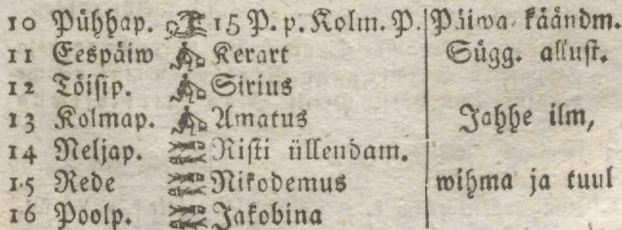 10 Pühhap. 15 P. p. Kolm. P. Päiwa käändm.
11 Eespäiw Kerart Sügg. allust.
12 Töisip. Sirius
13 Kolmap. Amatus Jahhe ilm,
14 Neljap. Risti üllendam.
15 Rede Nikodemus wihma ja tuul
16 Poolp. Jakobina